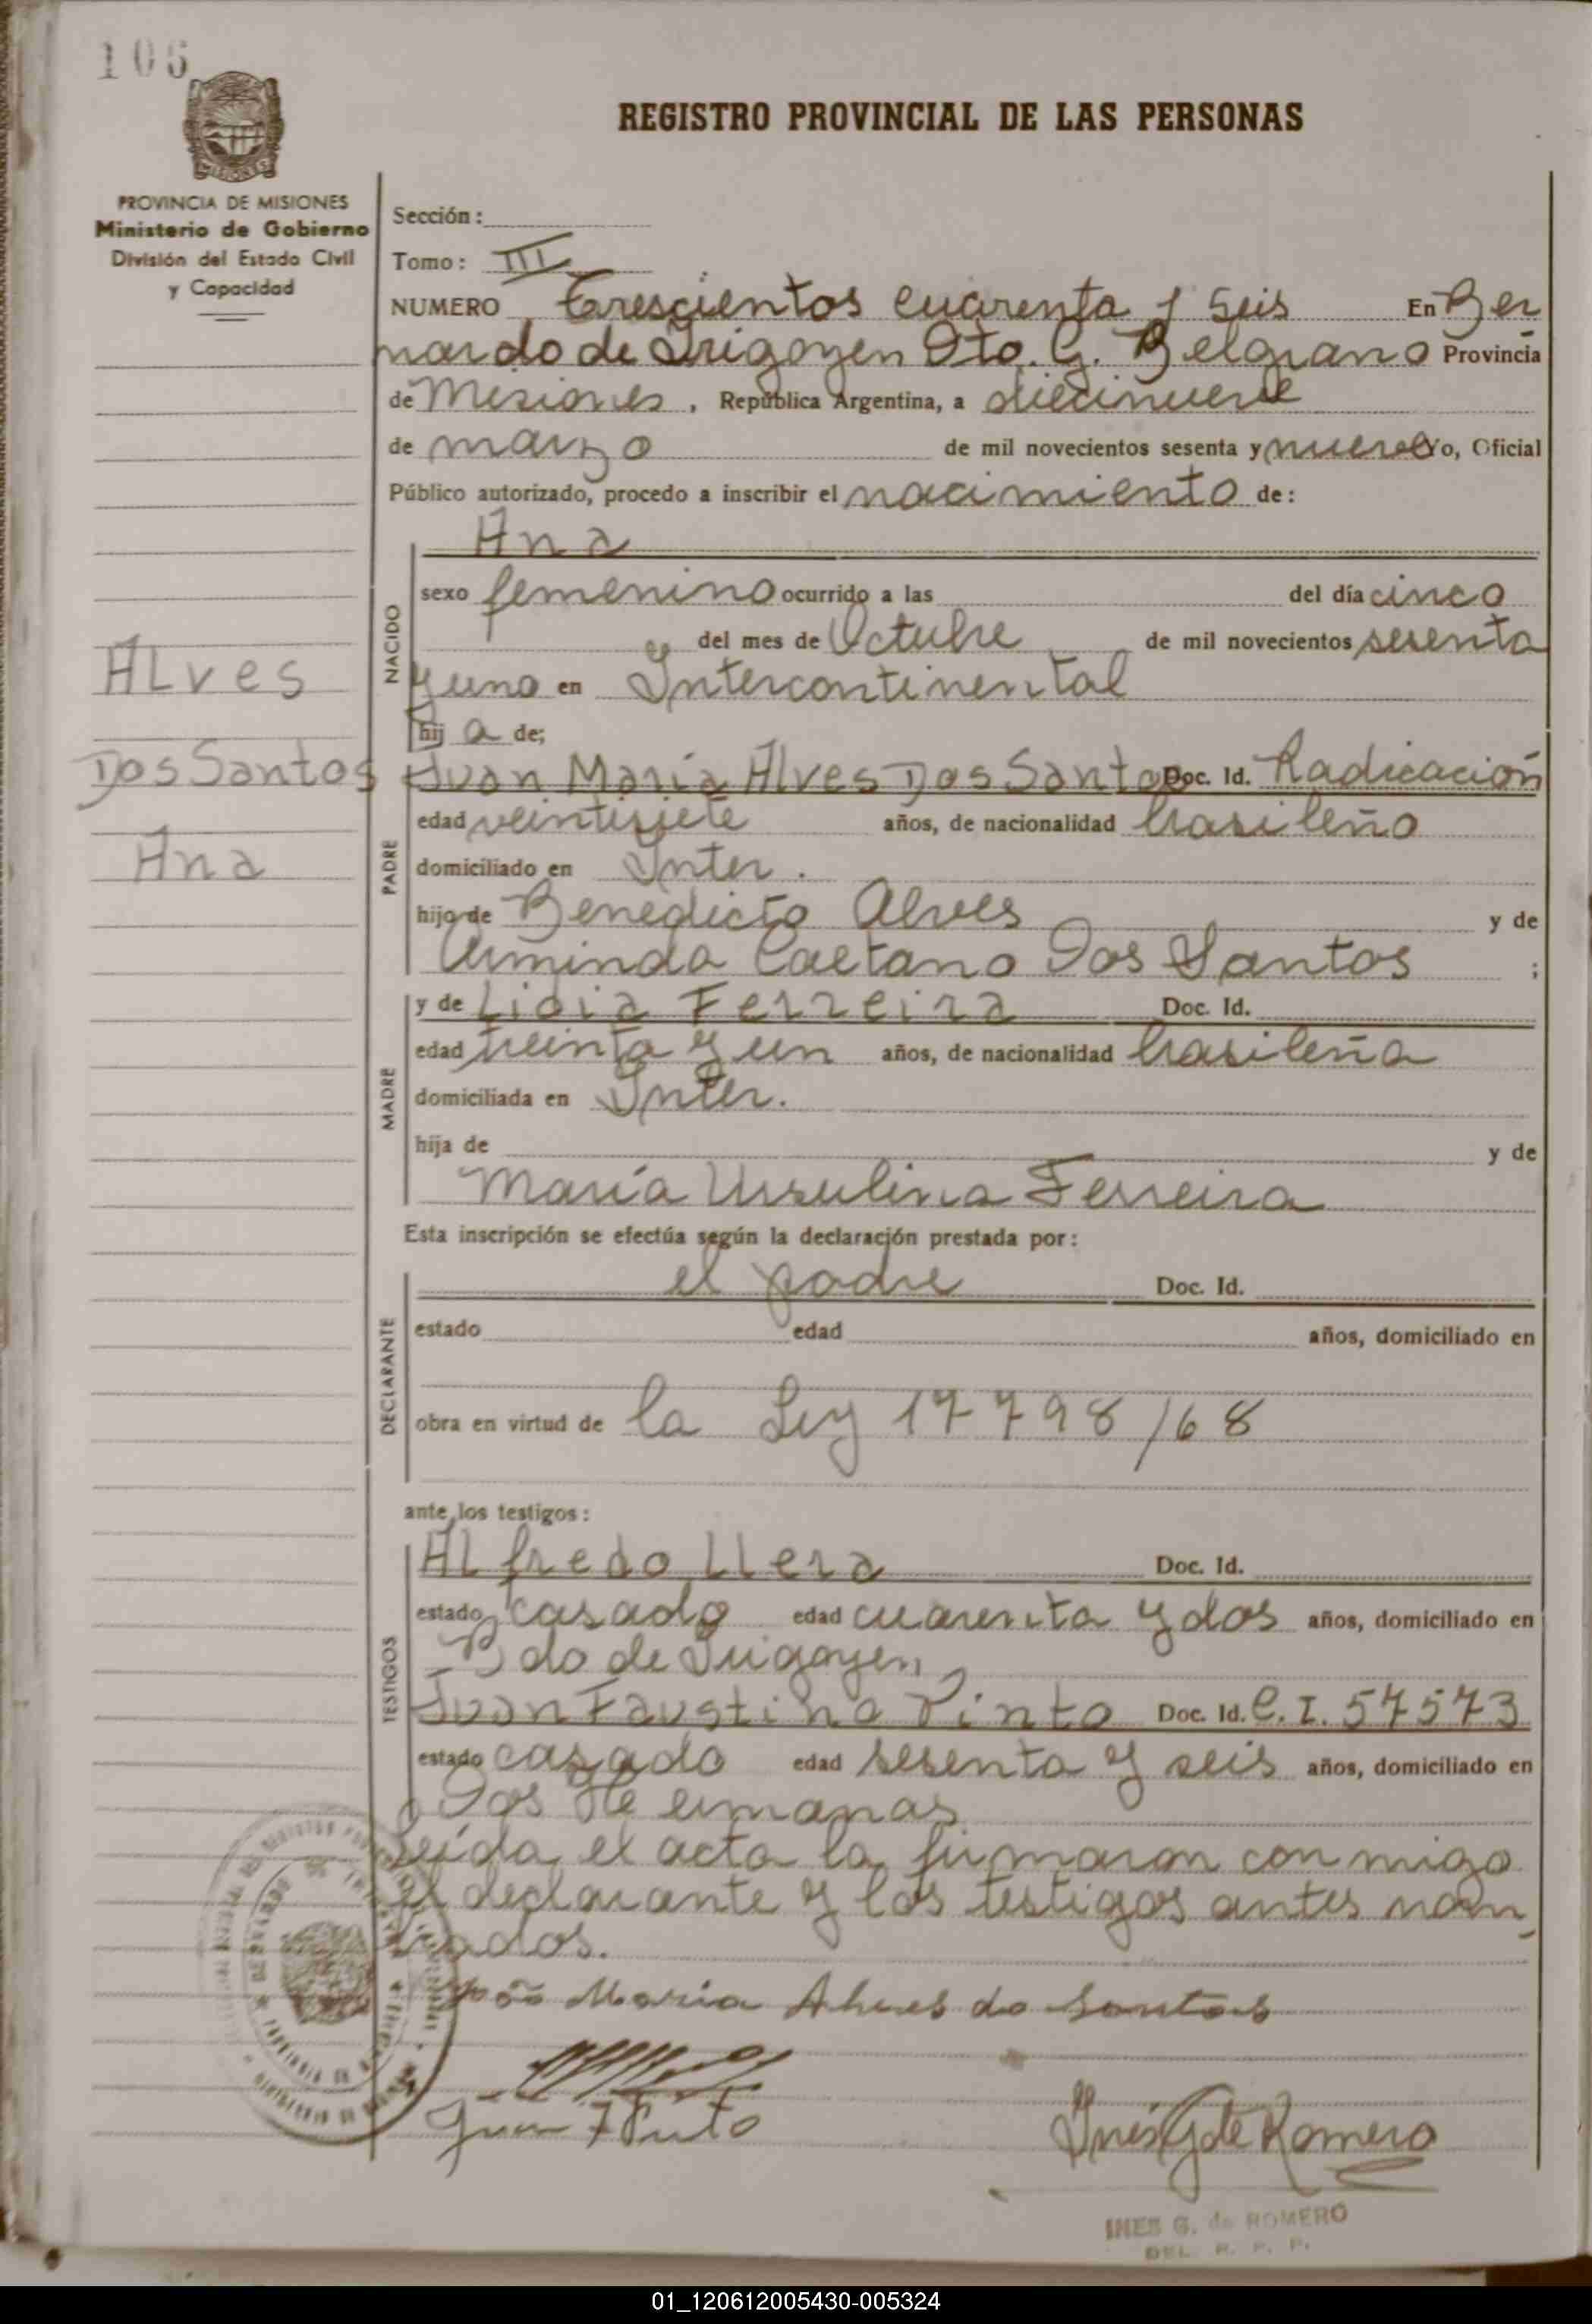 105
REGISTRO PROVINCIAL DE LAS PERSONAS
PROVINCIA DE MISIONES
Ministerio de Gobierno
División del Estado Civil
y Capacidad
Sección:
Tomo: III
NUMERO Trescientos cuarenta y seis En Ber
nardo de Irigoyen Dto. G. Belgrano Provincia
de Misiones, República Argentina, a diecinueve
de marzo de mil novecientos sesenta y nueve Yo, Oficial
Público autorizado, procedo a inscribir el nacimiento de:
Ana
NACIDO
sexo femenino ocurrido a las del día cinco
del mes de Octubre de mil novecientos sesenta
y uno en Intercontinental
hij a de;
Alves
Dos Santos
Ana
PADRE
Juan María Alves Dos Santos Doc. Id. Radicación
edad veintisiete años, de nacionalidad brasileño
domiciliado en Inter.
hijo de Benedicto Alves y de
Arminda Caetano Dos Santos ;
MADRE
y de Lidia Ferreira Doc. Id.
edad treinta y un años, de nacionalidad brasileña
domiciliada en Inter.
hija de y de
María Ursulina Ferreira
Esta inscripción se efectúa según la declaración prestada por:
DECLARANTE
el padre Doc. Id.
estado edad años, domiciliado en
obra en virtud de la Ley 17798/68
ante los testigos:
TESTIGOS
Alfredo Llera Doc. Id.
estado casado edad cuarenta y dos años, domiciliado en
Bdo de Irigoyen
Juan Faustino Pinto Doc. Id. C.I. 57573
estado casado edad sesenta y seis años, domiciliado en
Dos Hermanas
Leída el acta la firmaron con migo
el declarante y los testigos antes nom
brados.
João Maria Alves do Santos
Juan F Pinto
Inés G de Romero
INES G. de ROMERO
DEL. R. P. P.
01_120612005430-005324